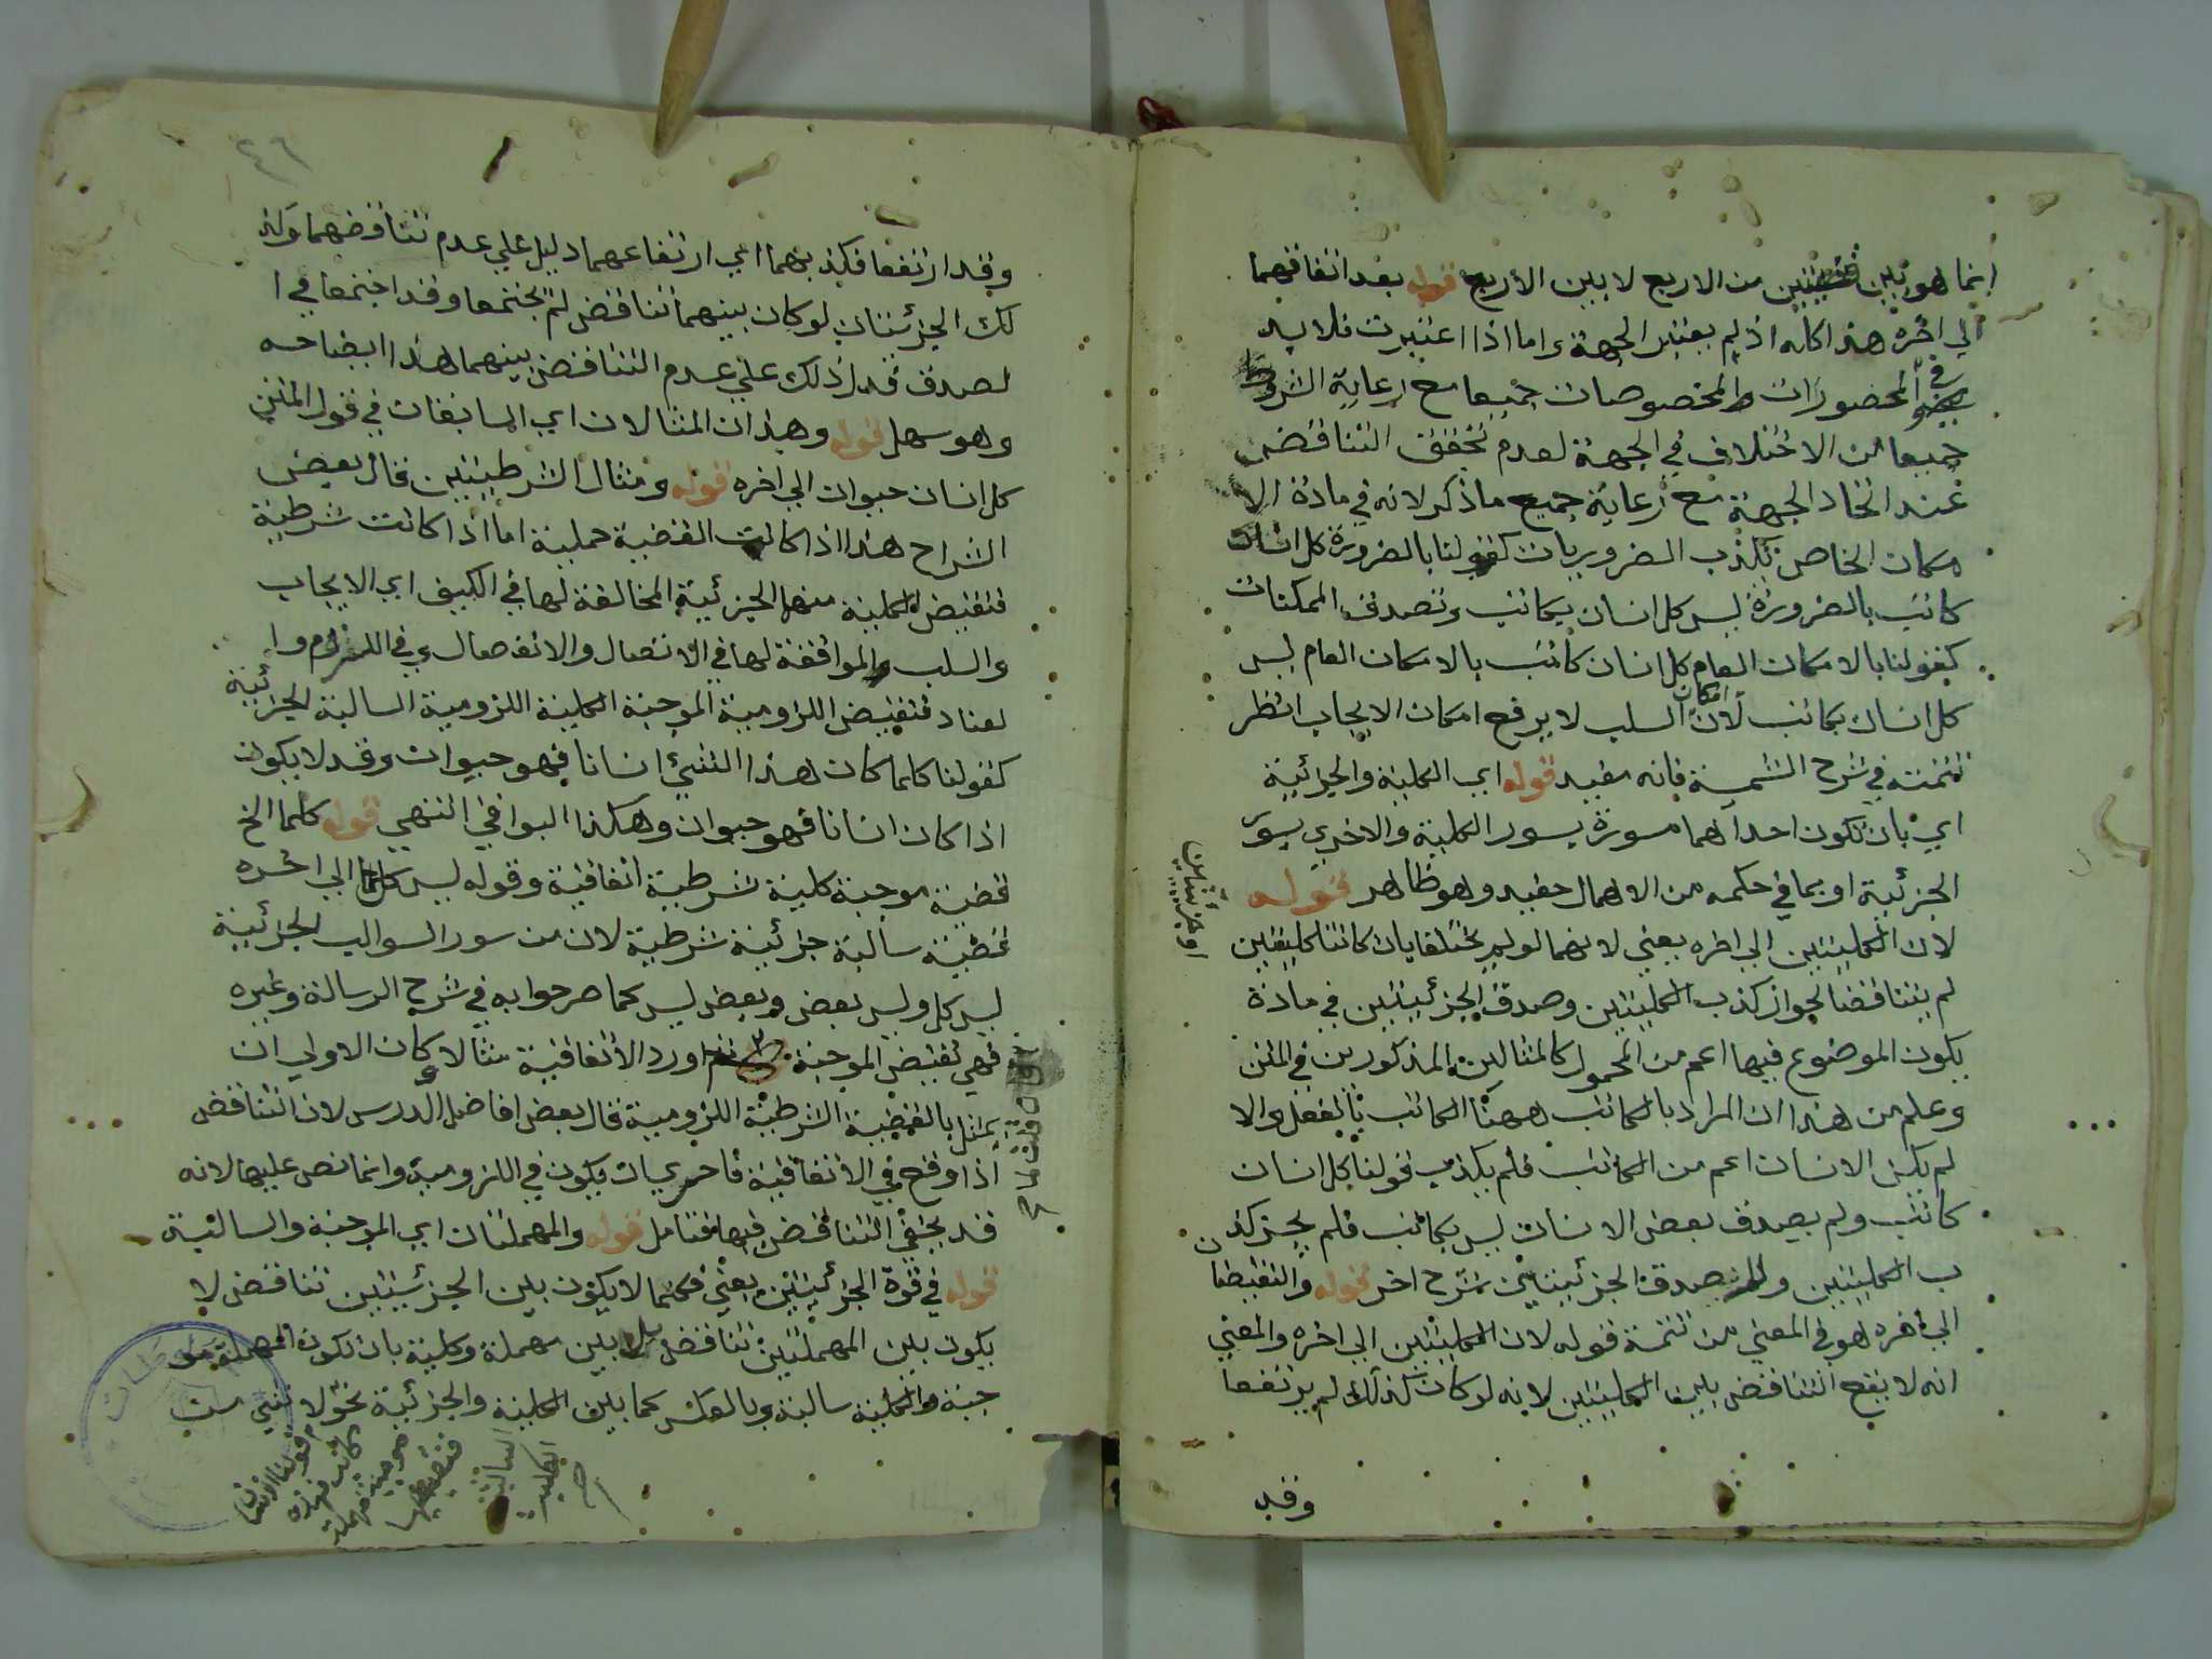 انما هو بين قضيتين من الاربع لا بين الاربع قوله بعد اتفاقهما
الي اخره هذا كله اذ لم يعتبر الجهة واما اذا اعتبرت فلا بد
في المحصورات والمخصوصات جميعا مع رعاية الشروط
جميعا من الاختلاف في الجهة لعدم تحقق التناقض
عند اتحاد الجهة مع رعاية جميع ما ذكر لانه في مادة الا
مكان الخاص تكذب الضروريات كقولنا بالضرورة كل انسان
كاتب بالضرورة ليس كل انسان بكاتب وتصدق الممكنات
كقولنا بالامكان العام كل انسان كاتب بالامكان العام ليس
كل انسان بكاتب لان امكان السلب لا يرفع امكان الايجاب انظر
تتمته في شرح الشمسية فانه مفيد قوله اي الكلية والجزئية
اي بان تكون احداهما مسورة بسور الكلية والاخري بسور
الجزئية او بما في حكمه من الاهمال مفيد وهو ظاهر قوله
لان الكليتين الي اخره يعني لانهما لو لم يختلفا بان كانتا كليتين
او جزئيتين
لم يتناقضا لجواز كذب الكليتين وصدق الجزئيتين في مادة
يكون الموضوع فيها اعم من المحمول كالمثالين المذكورين في المتن
وعلم من هذا ان المراد بالكاتب ههنا الكاتب بالفعل والا
لم يكن الانسان اعم من الكاتب فلم يكذب قولنا كل انسان
كاتب ولم يصدق بعض الانسان ليس بكاتب فلم يجز كذ
ب الكليتين و صدق الجزئيتين شرح اخر قوله والنقيضان
الي اخره هو في المعني من تتمة قوله لان الكليتين الي اخره والمعني
انه لا يقع التناقض بين الكليتين لانه لو كان كذلك لم يرتفعا
وقد
٤٦
وقد ارتفعا فكذبهما اي ارتفاعهما دليل علي عدم تناقضهما وكذ
لك الجزئيتان لو كان بينهما تناقض لم يجتمعا وقد اجتمعا في ا
لصدق فدل ذلك علي عدم التناقض بينهما هذا ايضاحه
وهو سهل قوله وهذان المثالان اي السابقان في قول المتن
كل انسان حيوان الي اخره قوله ومثال الشرطيتين قال بعض
الشراح هذا اذا كانت القضية حملية اما اذا كانت شرطية
فنقيض الكلية منها الجزئية المخالفة لها في الكيف اي الايجاب
والسلب والموافقة لها في الاتصال والانفصال وفي اللزوم وا
لعناد فنقيض اللزومية الموجبة الكلية اللزومية السالبة الجزئية
كقولنا كلما كان هذا الشيئ انسانا فهو حيوان وقد لا يكون
اذا كان انسانا فهو حيوان وهكذا البواقي انتهي قوله كلما الخ
قضية موجبة كلية شرطية اتفاقية وقوله ليس كلما الي اخره
قضية سالبة جزئية شرطية لان من سور السوالب الجزئية
ليس كل وليس بعض وبعض ليس كما صرحوا به في شرح الرسالة وغيره
فهي نقيض الموجبة اورد الاتفاقية مثالا وكان الاولي ان
يمثل بالقضية الشرطية اللزومية قال بعض افاضل الدرس لان التناقض
اذا وقع في الاتفاقية فاحري بان يكون في اللزومية وانما نص عليها لانه
قد يخفي التناقض فيها فتامل قوله والمهملتان اي الموجبة والسالبة
قوله في قوة الجزئيتين يعني فكما لا يكون بين الجزئيتين تناقض لا
يكون بين المهملتين تناقض بل بين مهملة وكلية بان تكون المهملة مو
جبة والكلية سالبة وبالعكس كما بين الكلية والجزئية نحو لا شيئ من
قولنا الانسان
كاتب فهذه
موجبة مهملة
فنقيضها
السالبة
الكلية